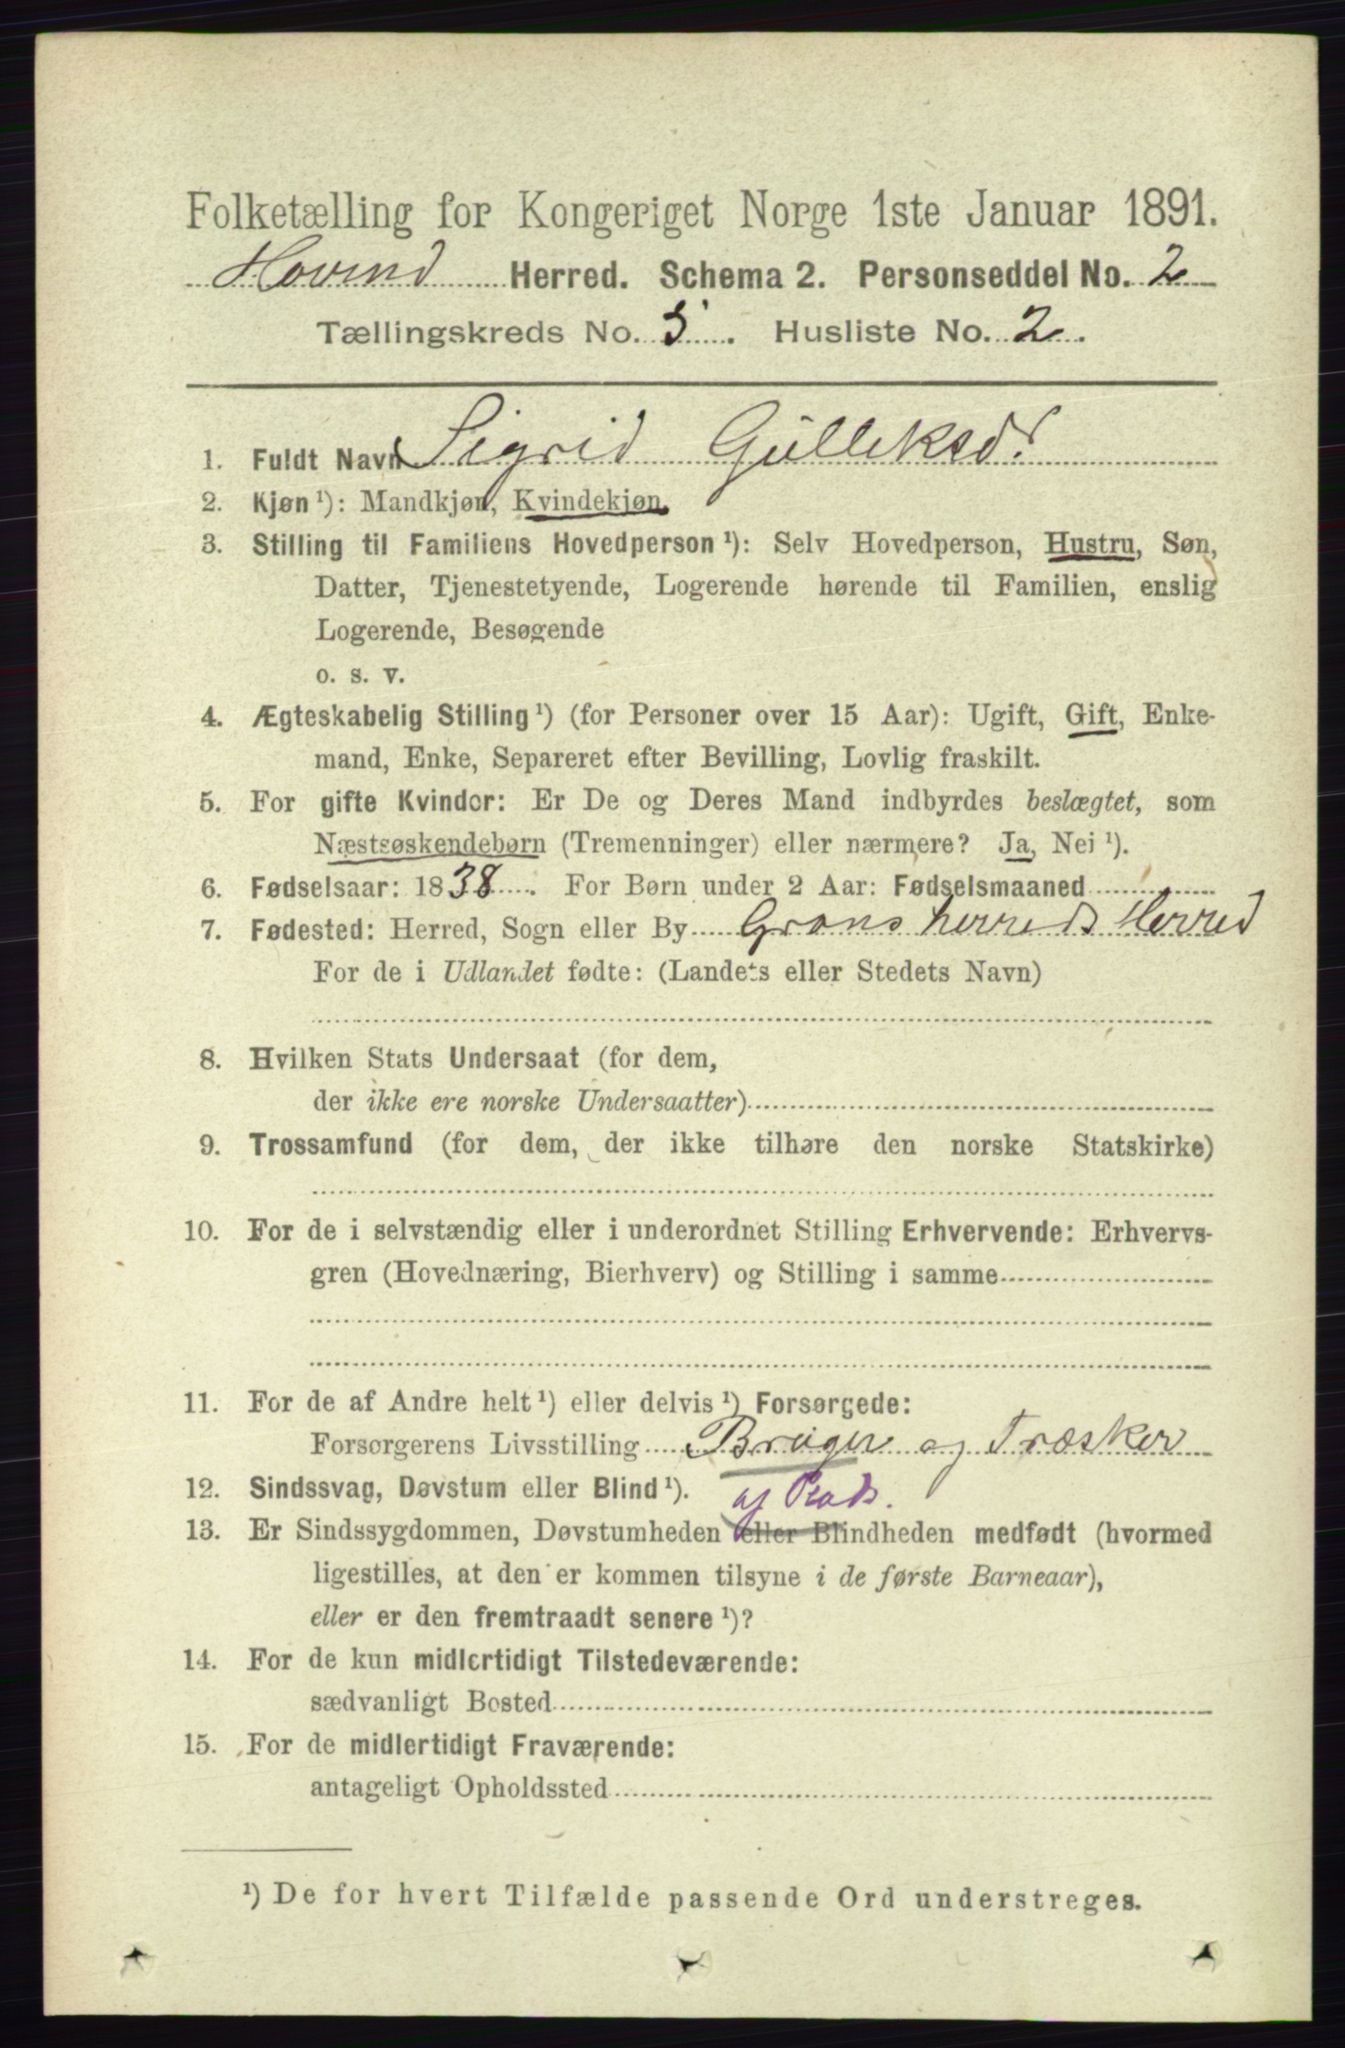 Folketælling for Kongeriget Norge 1ste Januar 1891.
Hovind Herred. Schema 2. Personseddel No. 2
Tællingskreds No. 5. Husliste No. 2.
1. Fuldt Navn Sigrid Gulleksd.
2. Kjøn ¹): Mandkjøn, Kvindekjøn.
3. Stilling til Familiens Hovedperson ¹): Selv Hovedperson, Hustru, Søn,
Datter, Tjenestetyende, Logerende hørende til Familien, enslig
Logerende, Besøgende
o. s. v.
4. Ægteskabelig Stilling ¹) (for Personer over 15 Aar): Ugift, Gift, Enke-
mand, Enke, Separeret efter Bevilling, Lovlig fraskilt.
5. For gifte Kvinder: Er De og Deres Mand indbyrdes beslægtet, som
Næstsøskendebørn (Tremenninger) eller nærmere? Ja, Nei ¹).
6. Fødselsaar: 1838. For Børn under 2 Aar: Fødselsmaaned
7. Fødested: Herred, Sogn eller By Gransherreds Herred
For de i Udlandet fødte: (Landets eller Stedets Navn)
8. Hvilken Stats Undersaat (for dem,
der ikke ere norske Undersaatter)
9. Trossamfund (for dem, der ikke tilhøre den norske Statskirke)
10. For de i selvstændig eller i underordnet Stilling Erhvervende: Erhvervs-
gren (Hovednæring, Bierhverv) og Stilling i samme
11. For de af Andre helt ¹) eller delvis ¹) Forsørgede:
Forsørgerens Livsstilling Bruger og Træsker
12. Sindssvag, Døvstum eller Blind ¹). af Plads.
13. Er Sindssygdommen, Døvstumheden eller Blindheden medfødt (hvormed
ligestilles, at den er kommen tilsyne i de første Barneaar),
eller er den fremtraadt senere ¹)?
14. For de kun midlertidigt Tilstedeværende:
sædvanligt Bosted
15. For de midlertidigt Fraværende:
antageligt Opholdssted
¹) De for hvert Tilfælde passende Ord understreges.